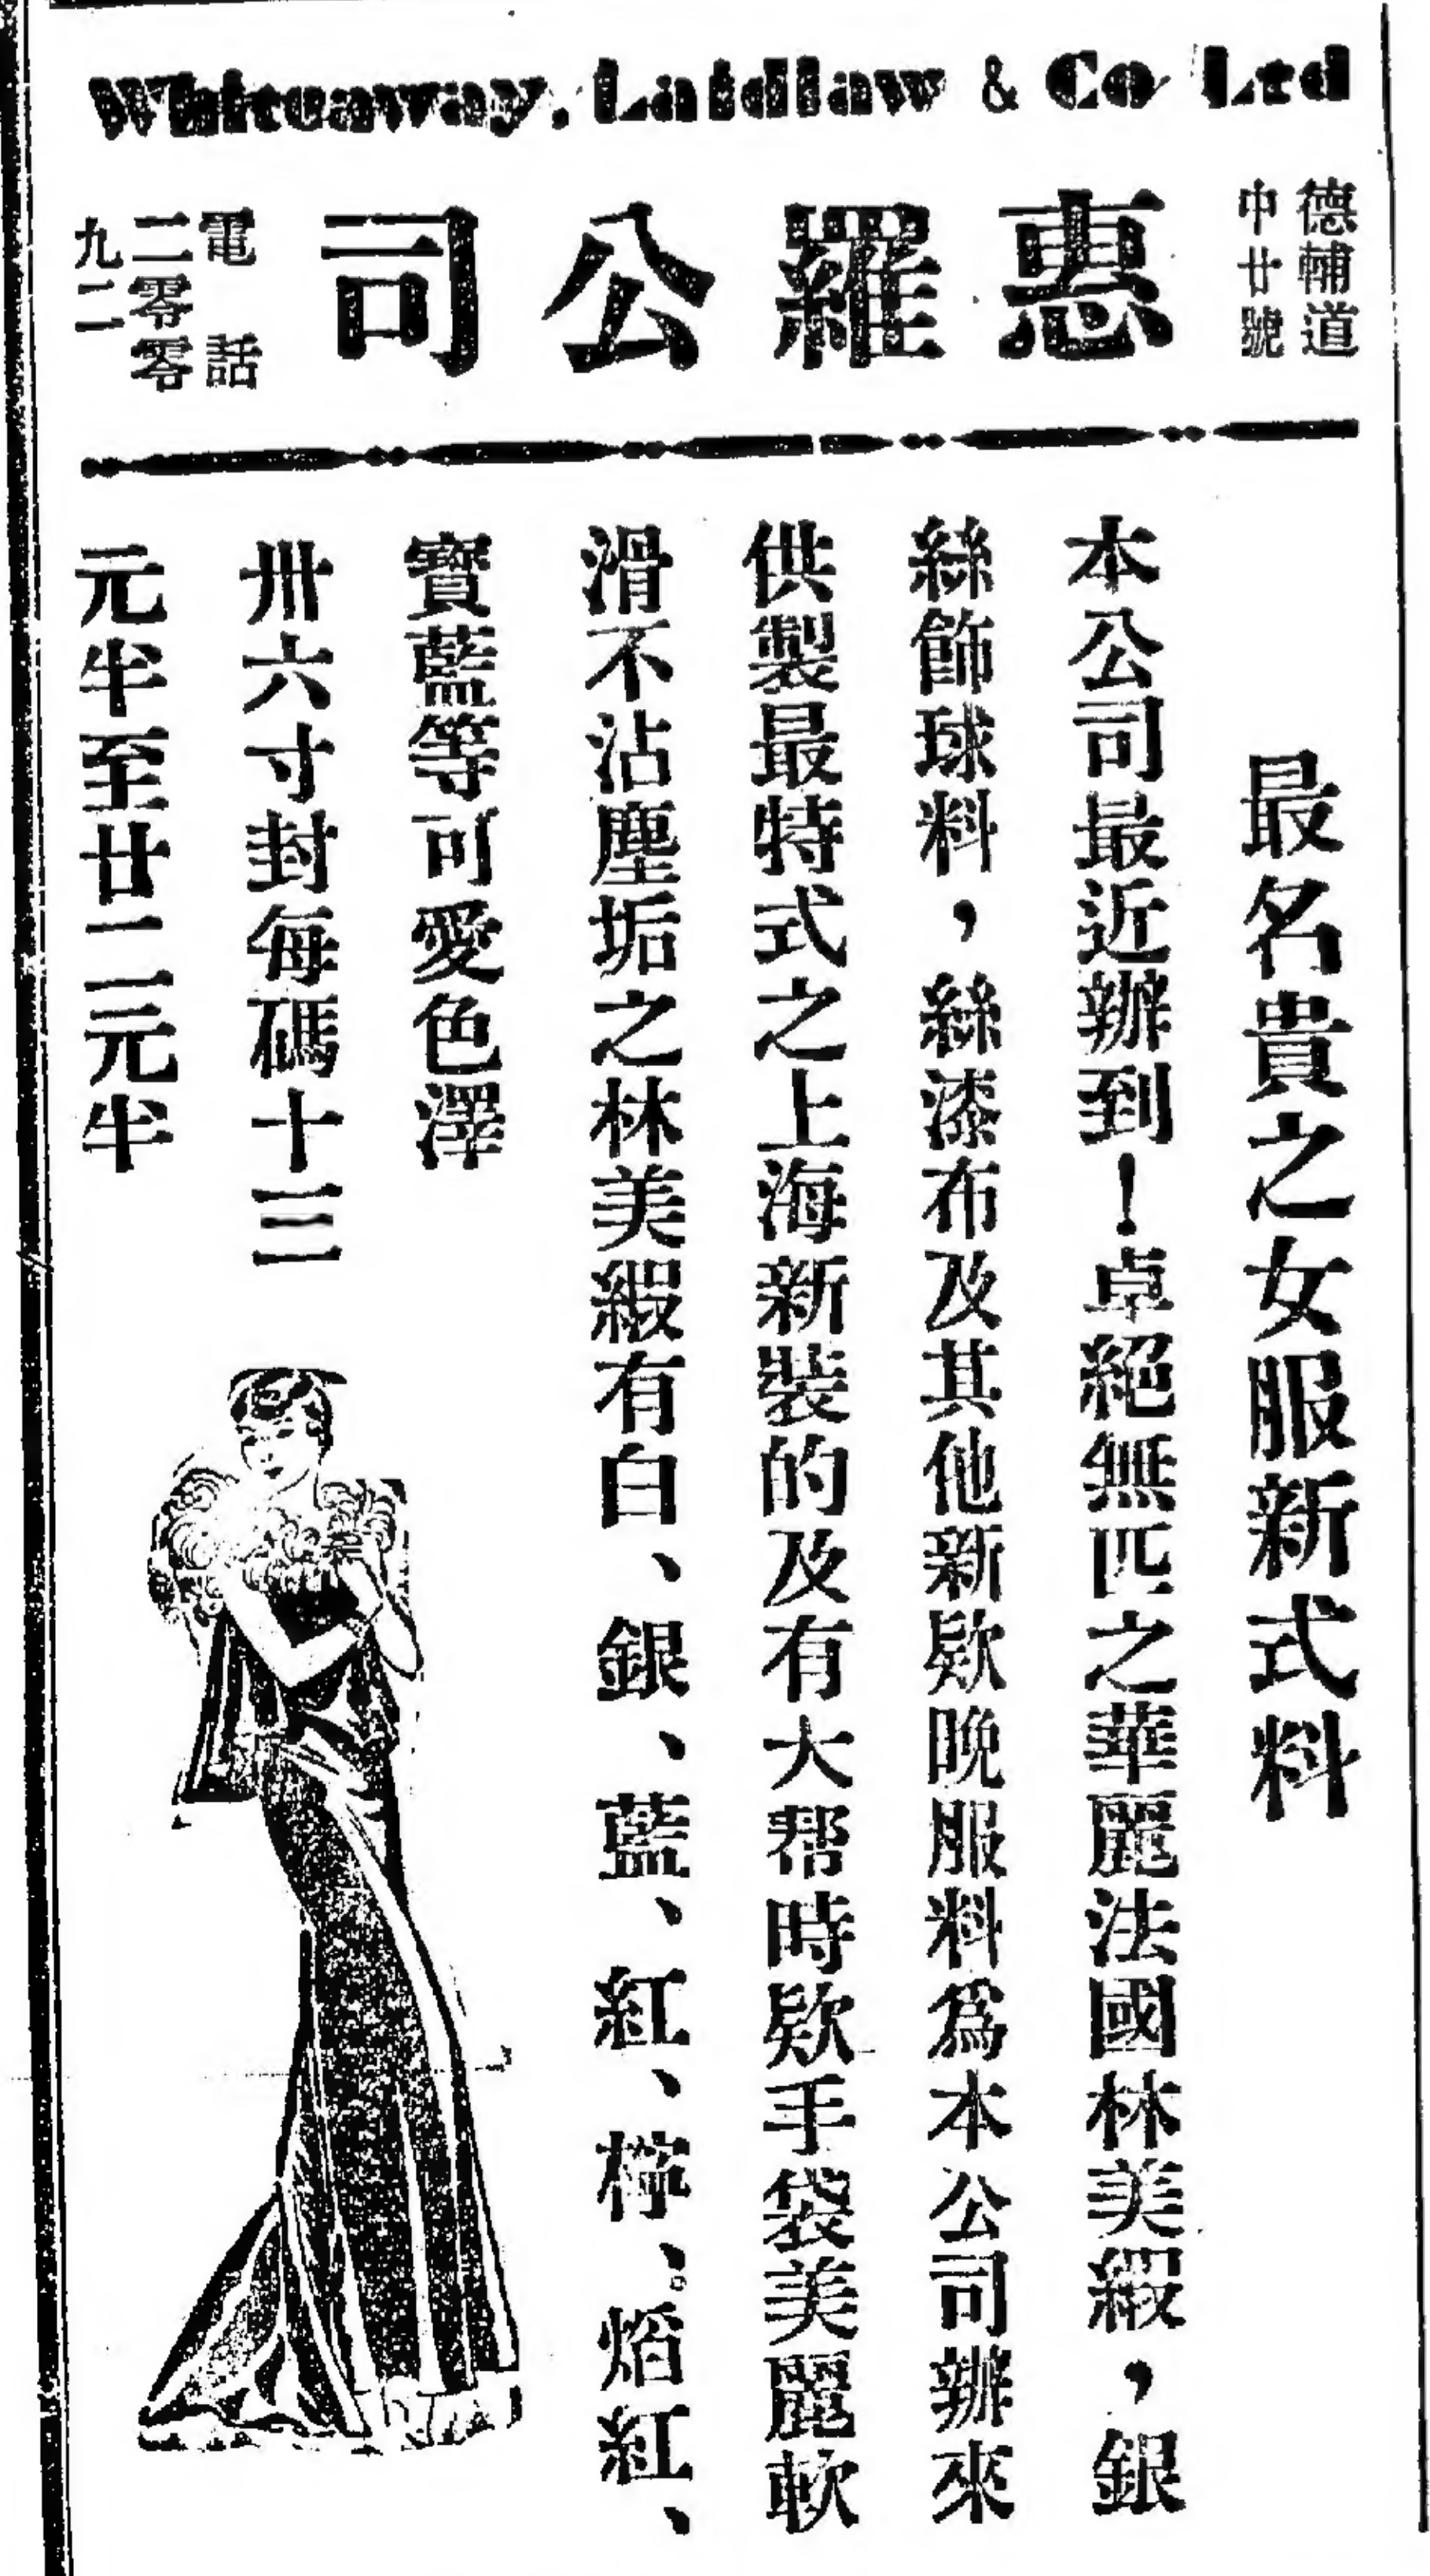 Whiteaway, Laidlaw & Co Ltd
德輔道
中廿號
惠羅公司
電話
二零零
九二
最名貴之女服新式料
本公司最近辦到！卓絕無匹之華麗法國林美緞，銀
絲飾球料，絲漆布及其他新欵晚服料爲本公司辦來
供製最特式之上海新裝的及有大帮時欵手袋美麗軟
滑不沾塵垢之林美緞有白、銀、藍、紅、檸、熖紅、
寶藍等可愛色澤
卅六寸封每碼十三
元半至廿二元半